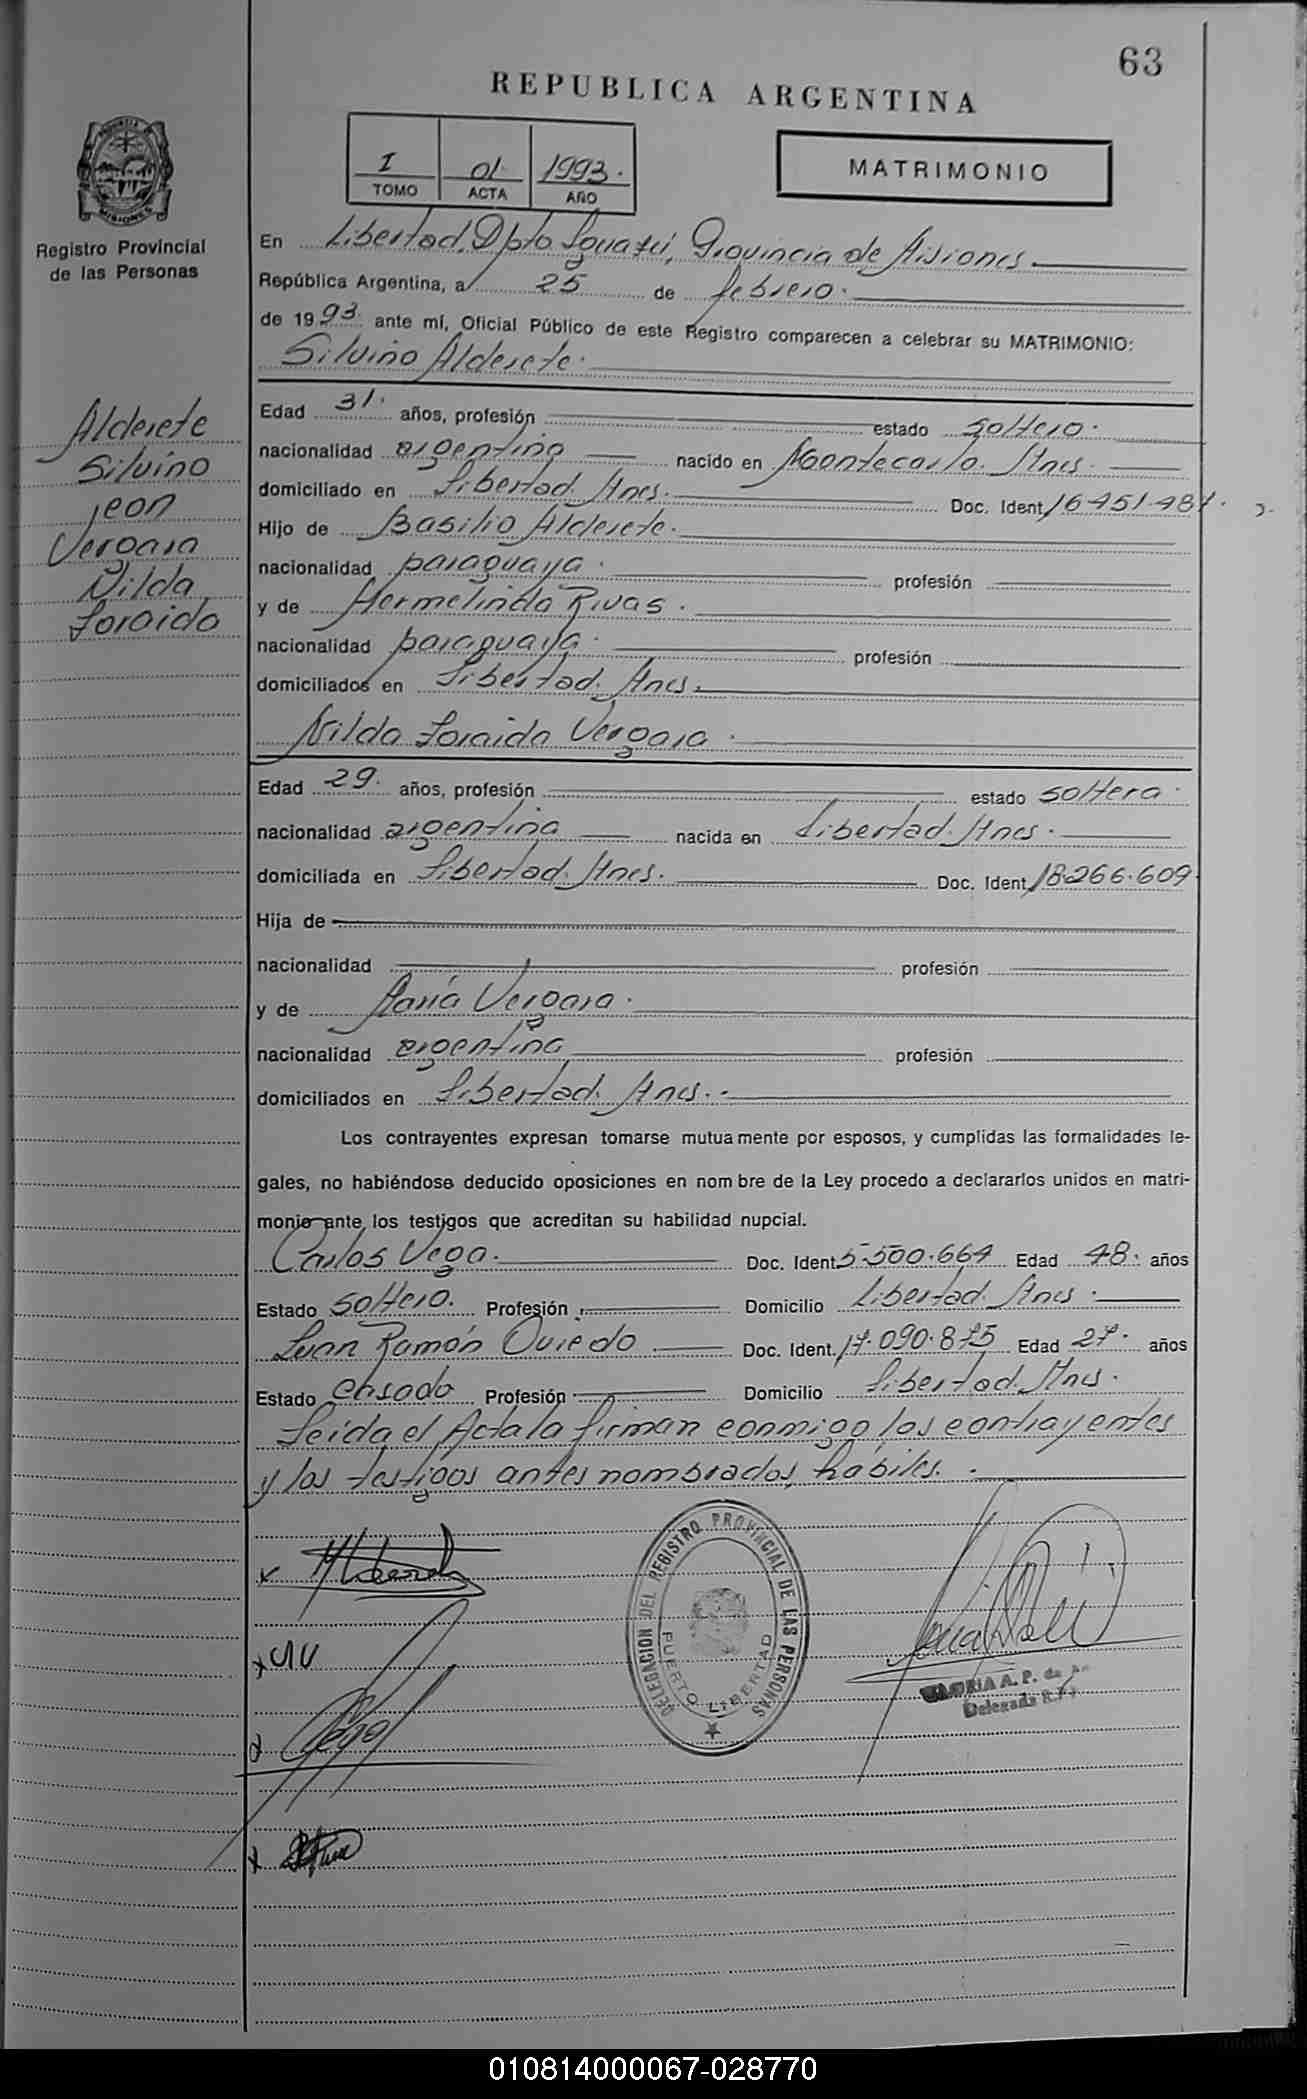 63
REPUBLICA ARGENTINA
I 01 1993.
TOMO ACTA AÑO
MATRIMONIO
PROVINCIA DE MISIONES
Registro Provincial
de las Personas
En Libertad, Dpto Iguazú, Provincia de Misiones.
República Argentina, a 25 de febrero.
de 1993 ante mí, Oficial Público de este Registro comparecen a celebrar su MATRIMONIO:
Silvino Alderete.
Alderete
Silvino
con
Vergara
Nilda
Zoraida
Edad 31. años, profesión estado soltero.
nacionalidad argentina nacido en Montecarlo. Mnes.
domiciliado en Libertad Mnes. Doc. Ident. 16.451.487.
Hijo de Basilio Alderete.
nacionalidad paraguaya. profesión
y de Hermelinda Rivas.
nacionalidad paraguaya. profesión
domiciliados en Libertad. Mnes.
Nilda Zoraida Vergara.
Edad 29. años, profesión estado soltera.
nacionalidad argentina nacida en Libertad. Mnes.
domiciliada en Libertad. Mnes. Doc. Ident. 18.266.609
Hija de
nacionalidad profesión
y de María Vergara.
nacionalidad argentina profesión
domiciliados en Libertad. Mnes.
Los contrayentes expresan tomarse mutuamente por esposos, y cumplidas las formalidades le-
gales, no habiéndose deducido oposiciones en nombre de la Ley procedo a declararlos unidos en matri-
monio ante los testigos que acreditan su habilidad nupcial.
Carlos Vega. Doc. Ident. 5.500.664 Edad 48. años
Estado soltero. Profesión Domicilio Libertad. Mnes.
Juan Ramón Oviedo Doc. Ident. 17.090.875 Edad 27. años
Estado casado Profesión Domicilio Libertad. Mnes.
Leída el Acta la firman conmigo los contrayentes
y los testigos antes nombrados, hábiles.
DELEGACION DEL REGISTRO PROVINCIAL DE LAS PERSONAS
PUERTO LIBERTAD
A. P. de
Delegada R.P.
010814000067-028770